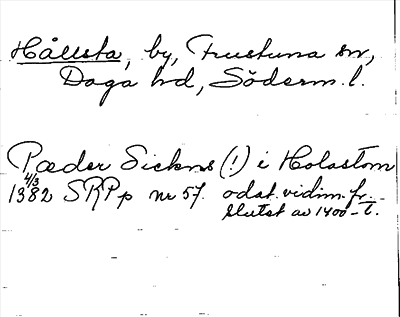 Hållsta, by, Frustuna sn,
Daga hd, Söderm. l.
Pæder Sickns (!) i Holastom
4/3
1382 SRPp nr 57. odat. vidim. fr.
slutet av 1400-t.